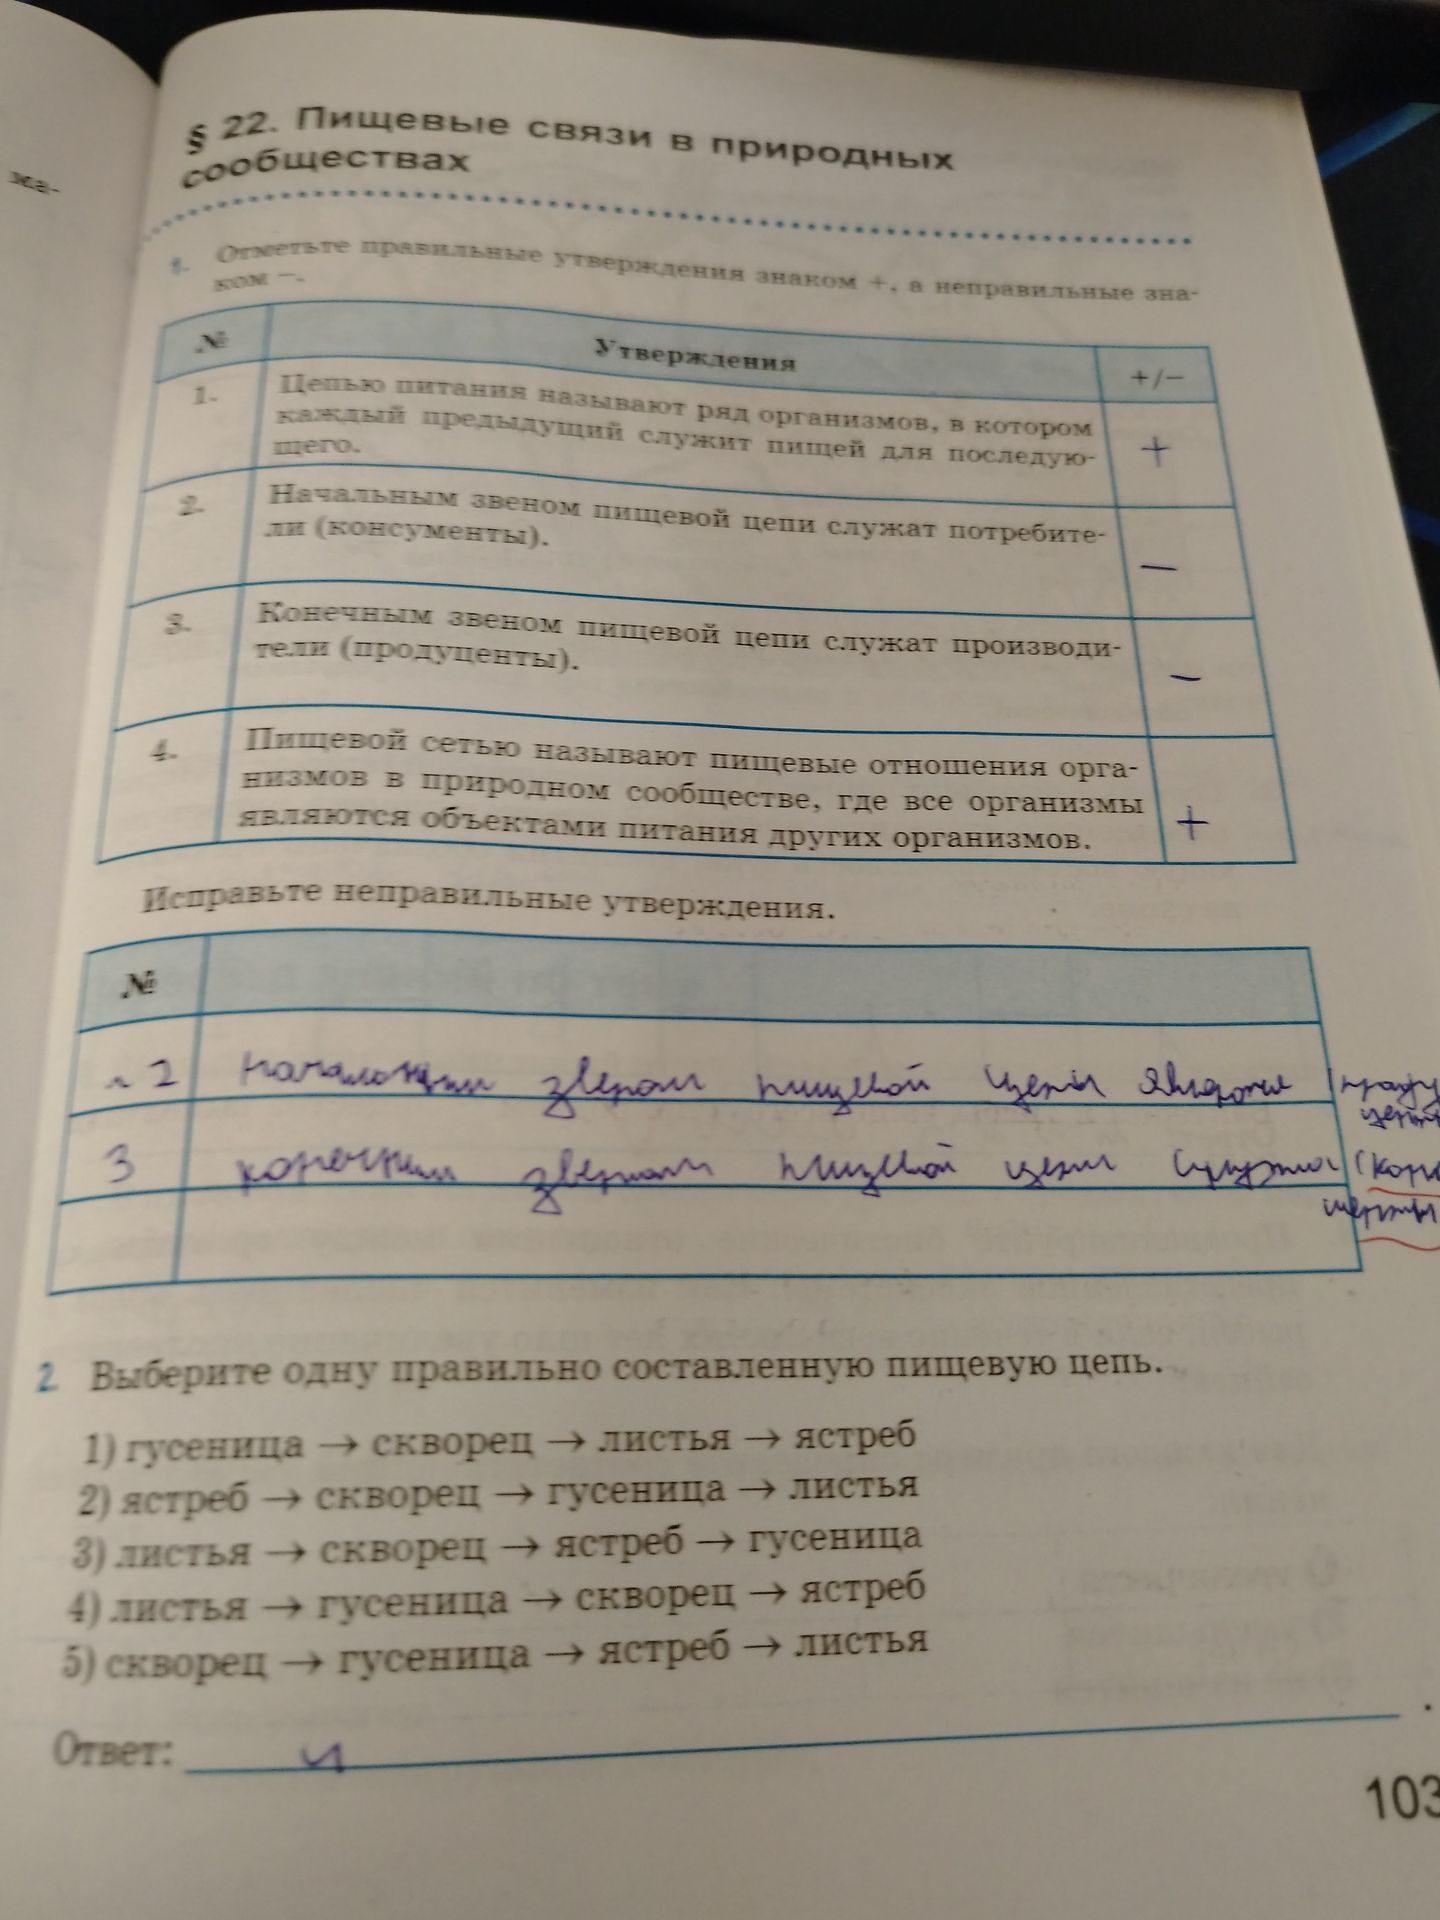 жа-
§ 22. Пищевые связи в природных
сообществах
1. Отметьте правильные утверждения знаком +, а неправильные зна-
ком −.
№ Утверждения +/−
1. Цепью питания называют ряд организмов, в котором
каждый предыдущий служит пищей для последую-
щего. +
2. Начальным звеном пищевой цепи служат потребите-
ли (консументы). −
3. Конечным звеном пищевой цепи служат производи-
тели (продуценты). −
4. Пищевой сетью называют пищевые отношения орга-
низмов в природном сообществе, где все организмы
являются объектами питания других организмов. +
Исправьте неправильные утверждения.
№
2 Начальным звеном пищевой цепи
3 конечным звеном пищевой цепи
2. Выберите одну правильно составленную пищевую цепь.
1) гусеница → скворец → листья → ястреб
2) ястреб → скворец → гусеница → листья
3) листья → скворец → ястреб → гусеница
4) листья → гусеница → скворец → ястреб
5) скворец → гусеница → ястреб → листья
Ответ: 4 .
103